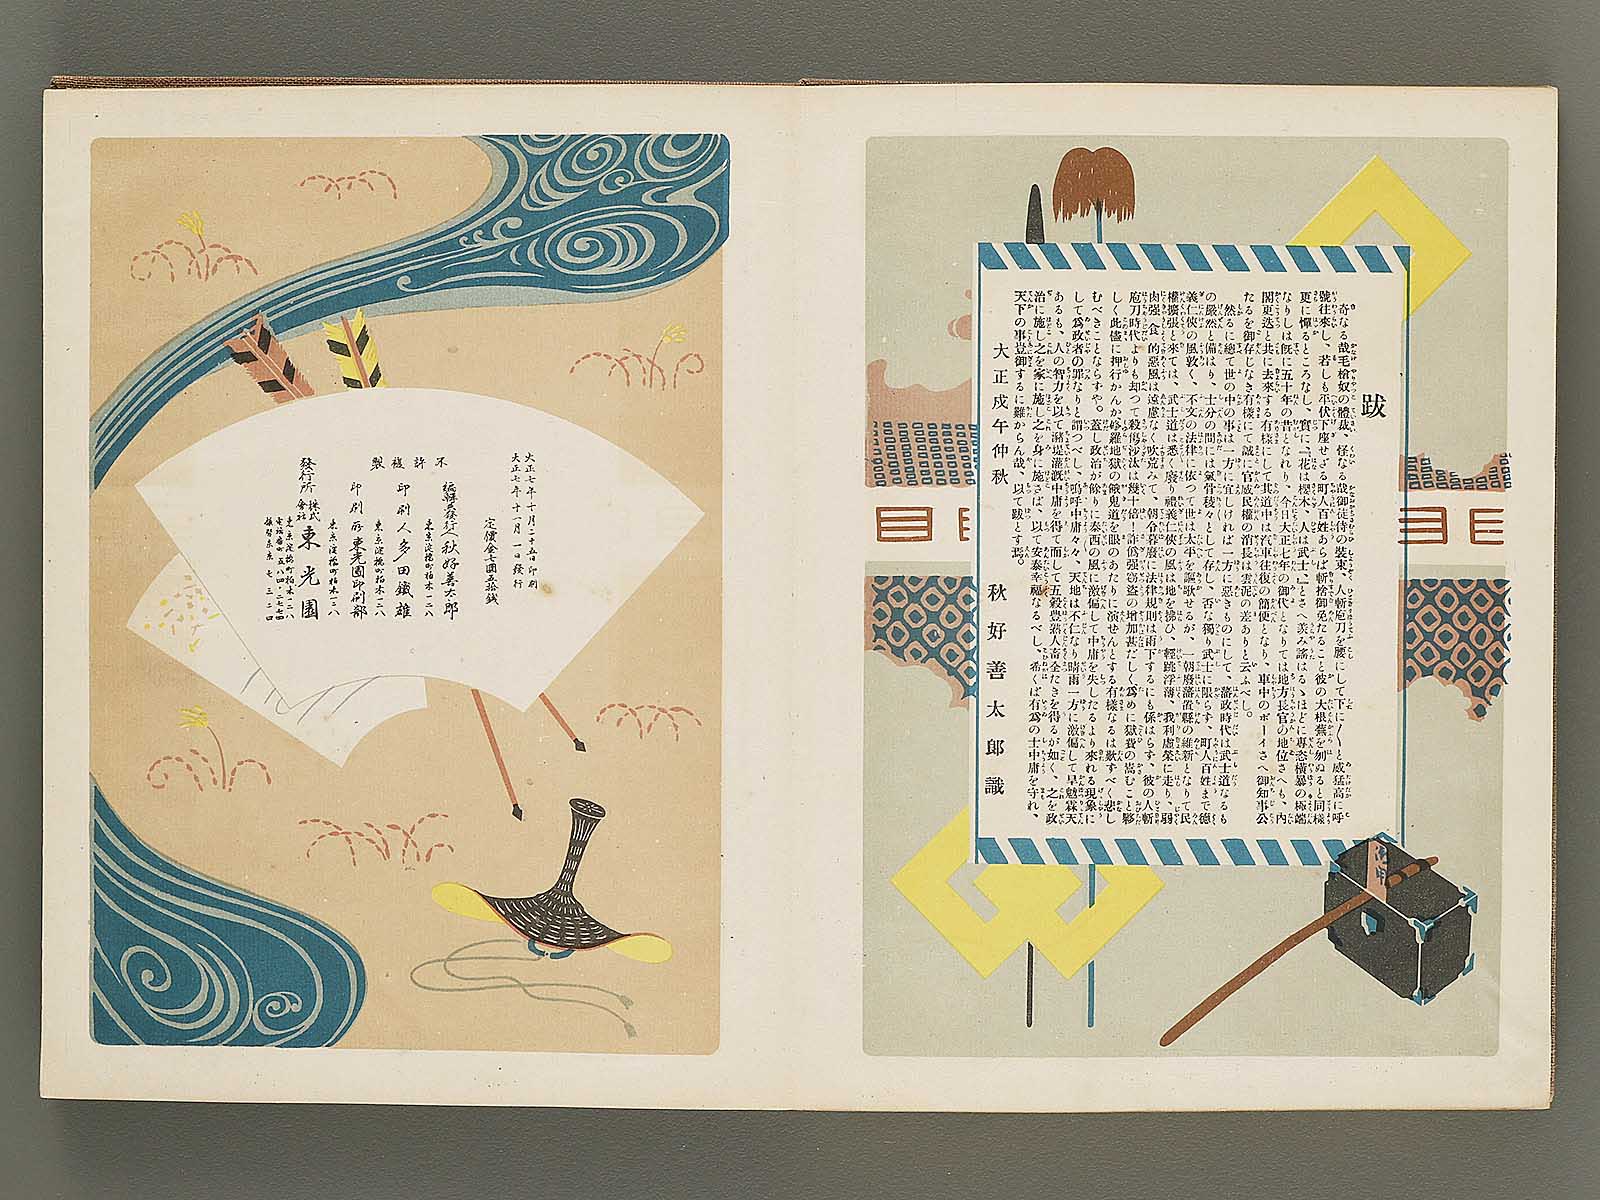 跋
奇なる哉毛槍奴の體裁、怪なる哉御徒侍の裝束、人斬庖刀を腰にして下に〳〵と威猛高に呼
號往來し、若しも平伏下座せざる町人百姓あらば斬捨御免たること彼の大根蕪を刎ぬると同樣
更に憚るところなし、實に「花は櫻木、人は武士」とさへ羨み謠はるゝほどに專恣橫暴の極端
なりしは既に五十年の昔となれり、今日大正七年の御代となりては地方長官の地位さへも、內
閣更迭と共に去來する有樣にして其道中は汽車往復の簡便となり、車中のボーイさへ御知事公
たるを御存じなき有樣にて誠に官威民權の消長は雲泥の差ありと云ふべし。
然るに總て世の中の事は一方に宜しければ一方に惡きものにして、藩政時代は武士道なるも
の嚴然と備はり、士分の間には氣骨稜々として存し、否な獨り武士に限らず、町人百姓まで德
義仁俠の風敦く、不文の法律に依つて世は太平を謳歌せるが、一朝廢藩置縣の維新となりて民
權擴張と來ては、武士道は悉く廢り禮義仁俠の風は地を拂ひ、輕跳浮薄、我利虛榮に走り、弱
肉强食的惡風は遠慮なく吹荒みて、朝令暮廢に法律規則は雨下するにも係はらず、彼の人斬
庖刀時代よりも却つて殺傷沙汰は幾十倍!詐僞强竊盜の增加甚だしく爲めに獄費の嵩むこと夥
しく此儘に押行かんか修羅地獄の餓鬼道を眼のあたりに演ぜんとする有樣なるは歎ずべく悲し
むべきことならずや。蓋し政治が餘りに泰西の風に激偏して中庸を失したるより來れる現象に
して爲政者の罪なりと謂つべし、嗚呼中庸々々、天地は不仁なり晴雨一方に激偏して旱魃霖天
あるも、人の智力を以て瀦堤灌漑中庸を得て而して五穀豐熟人畜全たきを得るが如く、之を政
治に施し之を家に施し之を身に施さば、以て安泰幸福なるべし、希くば有爲の士中庸を守れ、
天下の事豈御するに難からん哉、以て跋とす焉。
大正戌午仲秋
秋好善太郎識
大正七年十月二十五日印刷
大正七年十一月一日發行
定價金七圓五拾錢
不許複製
編輯兼發行人 秋好善太郎
東京淀橋町柏木一二八
印刷人 多田鐵雄
東京淀橋町柏木一二八
印刷所 東光園印刷部
東京淀橋町柏木一二八
發行所 株式會社 東光園
東京淀橋町柏木一二八